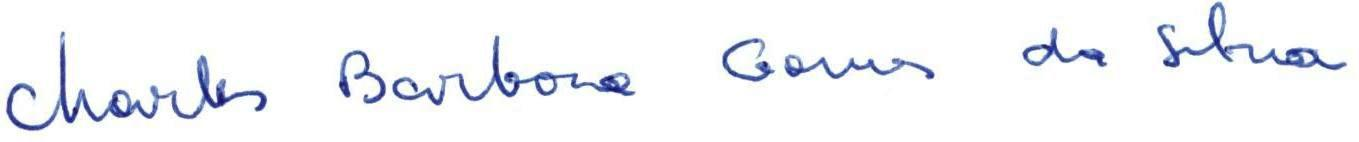 Charles Barbosa Gomes da Silva